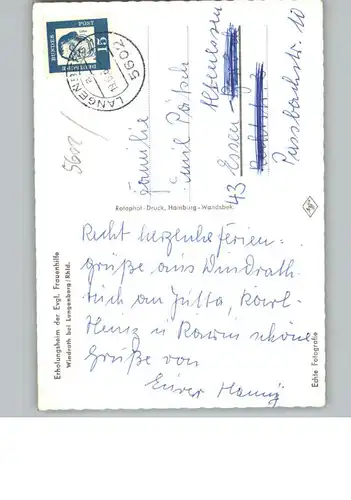 DEUTSCHE
BUNDES
POST
15
LANGENBERG
5602
5602
Familie
Emil Pötsch
43 Essen - Altenessen
Passbachstr. 10
Rotophot-Druck, Hamburg-Wandsbek
Agfa
Recht herzliche Ferien-
grüße aus Windrath
auch an Jutta, Karl-
Heinz u Karin schöne
Grüße von
Eurer
Erholungsheim der Evgl. Frauenhilfe
Windrath bei Langenberg/Rhld.
Echte Fotografie